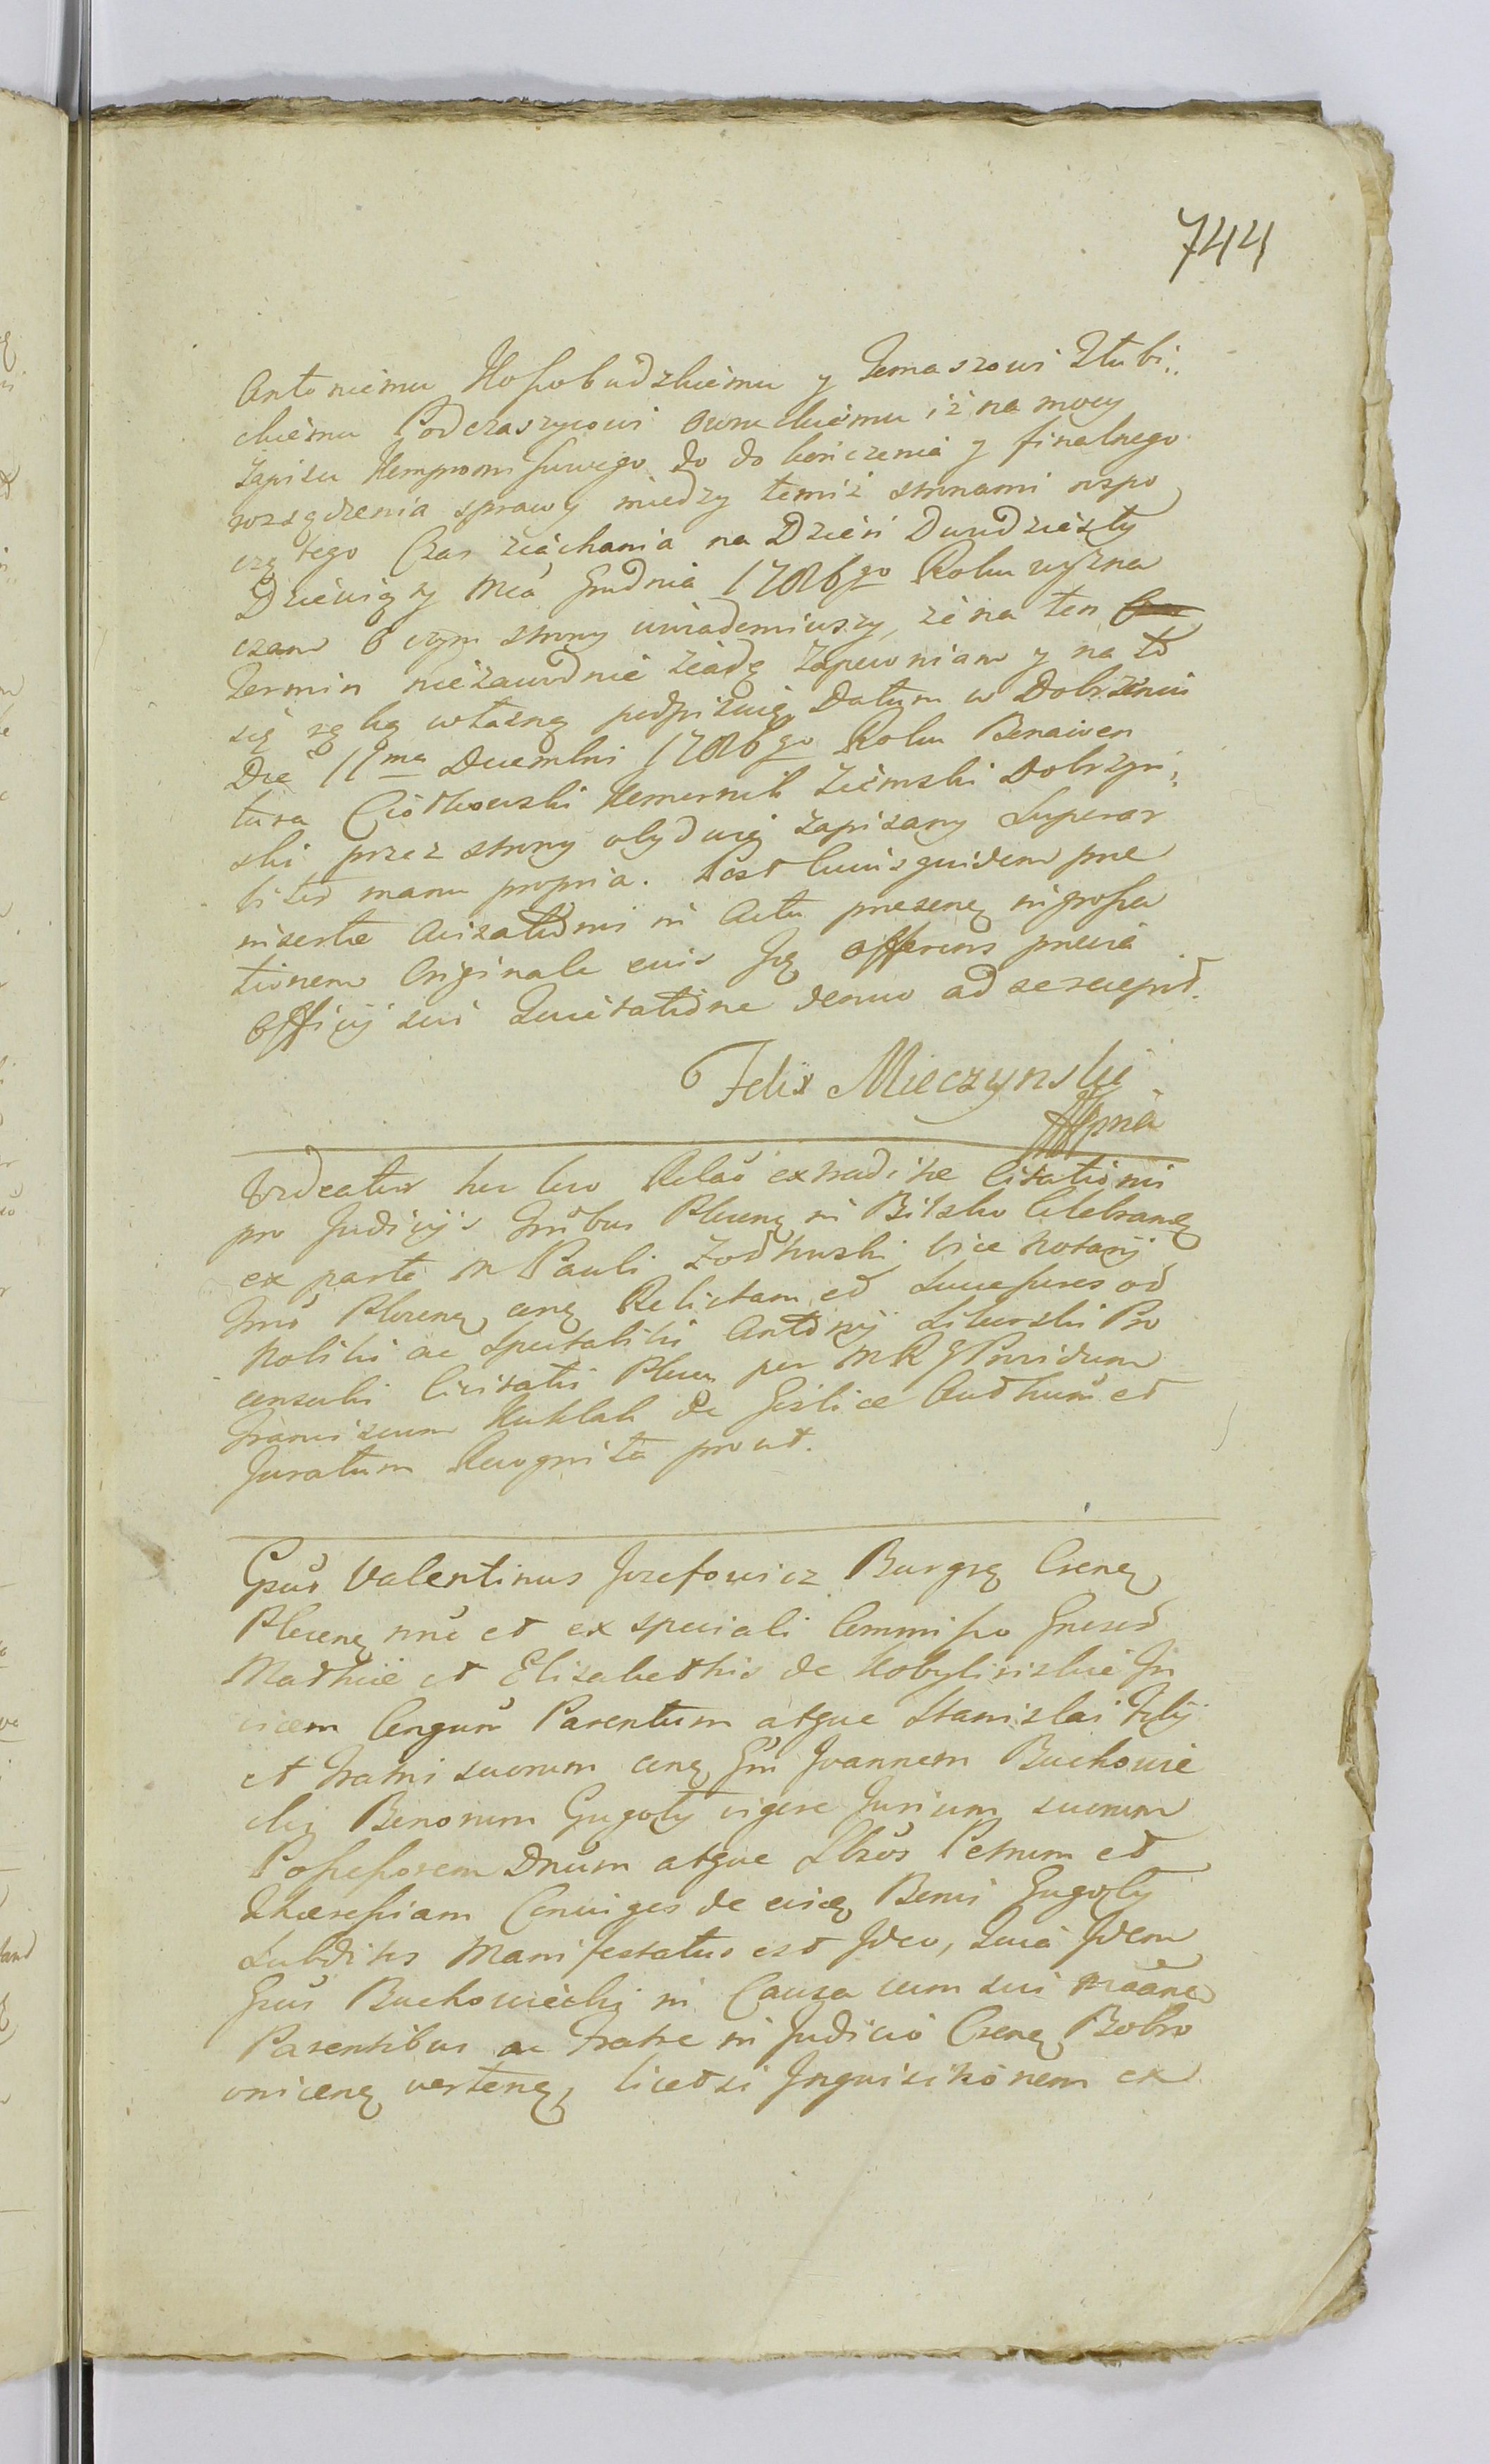 744
Antoniemu Kossobudzkiemu y Tomaszowi Słubi,,
ckiemu Podczaszycowi owruckiemu iż na mocy
Zapisu Kompromissowego do do kończenia y finalnego
rozsądzenia sprawy miedzy temiż stronami rospo
czętego Czas ziachania na Dzień Dwudziesty
Dziewiąty Mca Grudnia 1786go Roku wyzna
czam o czym strony uwiadomiwszy, że na ten
Termin niezawodnie ziadę Zapewniam y na to
się ręką własną podpisuię Datum w Dobrzeniu
Die 11ma Decembri 1786go Roku Bonawen
tura Ciołkowski Komornik Ziemski Dobrzyn,,
ski przez strony obydwie zapisany Superar
biter manu propria. Post cuius quidem pre
insertæ Avizationis in Acta præsentę ingrossa
tionem Originale eius Iſę offerens prævia
Officij sui Quietatione denuo ad se recepit.
Felix Mieczynski
mpria
Videatur hic loco Relaõ extraditæ Citationis
pro Judicijs Trribus Plocenę in Bilsko Celebranę
ex parte M Pauli Zodkowski Vice Notarij
Trris Plocenę conę Relictam et Successores od
Nolski ac Spectabilis Antonij Sikorski Pro
consulis Civitatis Plocen per MR G Providum
Franciscum Kuklak de Goslice Authum et
Juratum Recognita prout.
Gnsus Valentinus Jozefowicz Burgrę Csenę
Plocenę nnẽ et ex speciali Commisso Gnsrd
Mathiæ et Elisabethis de Kobylinskie In
vicem Congum Parentum atque Stanislai Filij
et Fratris suorum conę Gm Joannem Buchowie
cki Bonorum Gugoły vigore Jurium suorum
Possessorem Dnum atque Lbros Petrum et
Theressiam Conuiges de eisdę Bonis Gugoły
Subditos Manifestatus est Ideo, Quia Idem
Gsus Buchowiecki in Causa cum sui
Parentibus ac Fratre in Judicio Csenę Bobro
vnicenę vertenę, licet si Inquisitionem ex